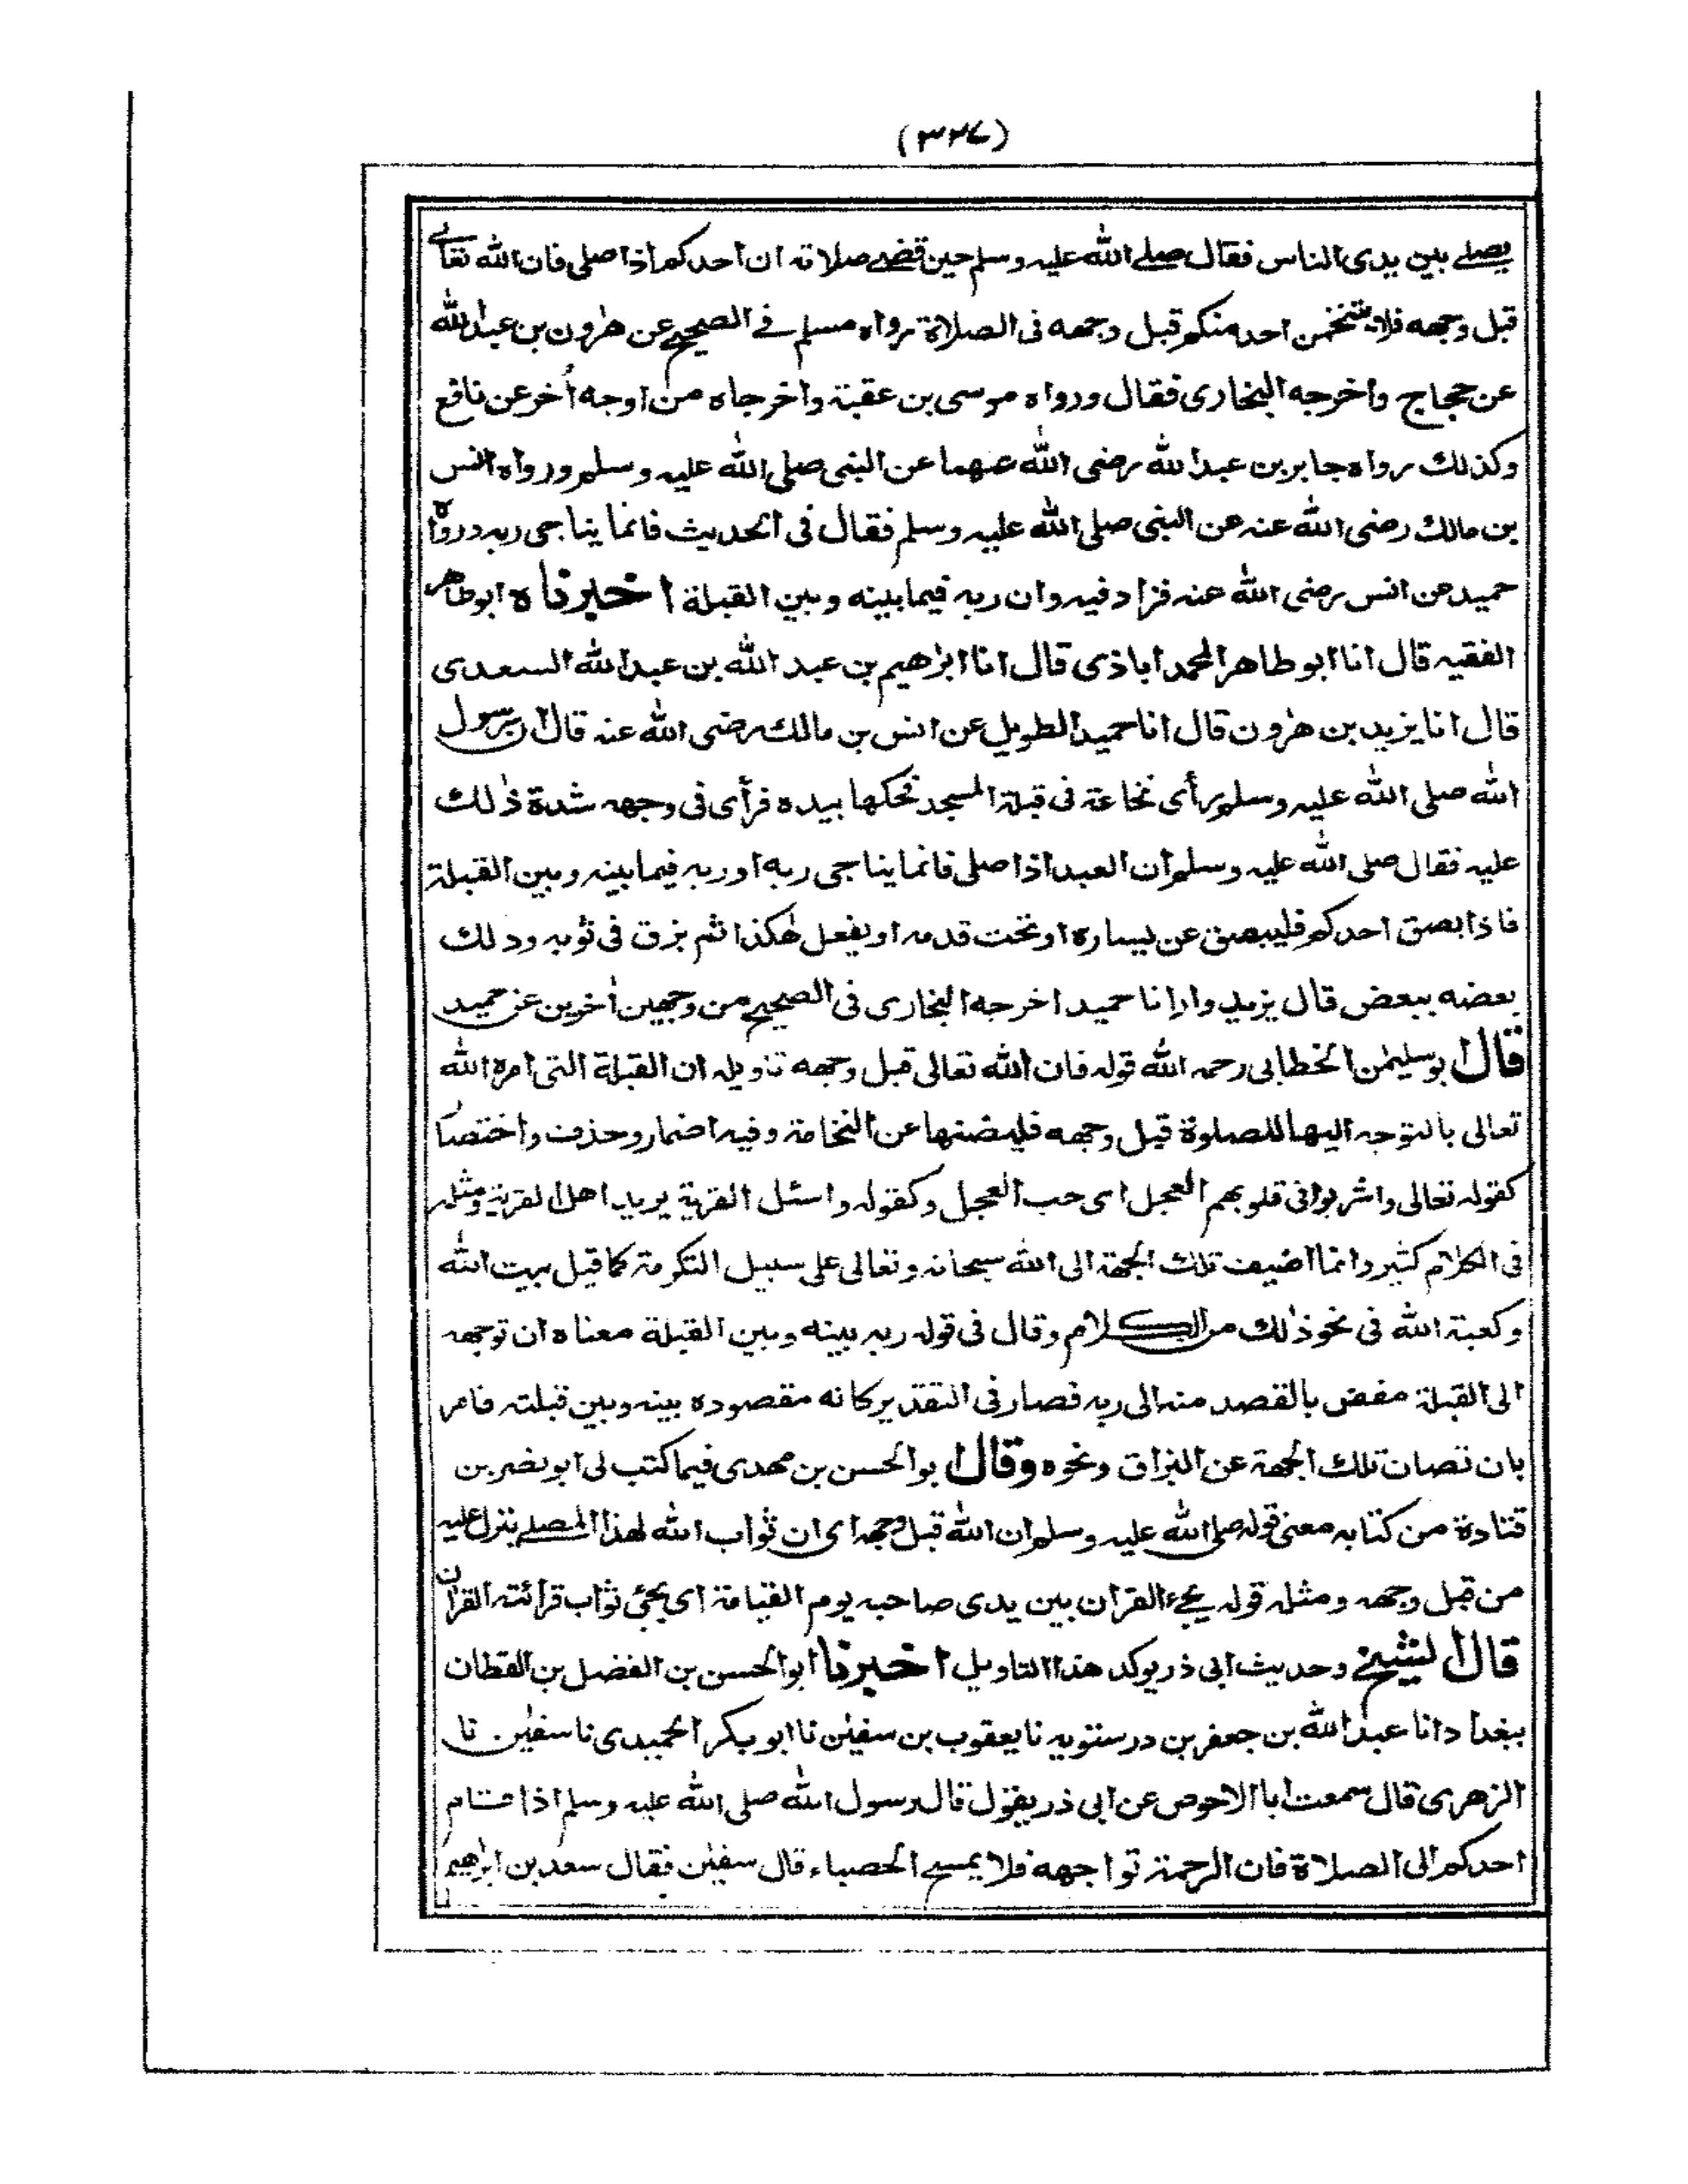 (٣٢٧)
يصلے بين يدى الناس فقال صلے الله عليه وسلم حين قضے صلاته ان احدكم اذا صلى فان الله تعالے
قبل وجهه فلا يتنخمن احد منكم قبل وجهه فى الصلاة رواه مسلم فے الصحيح عن هٰرون بن عبد الله
عن حجاج واخرجه البخارى فقال ورواه موسى بن عقبة واخرجاه من اوجه اُخر عن نافع
وكذلك رواه جابر بن عبد الله رضى الله عنهما عن النبى صلى الله عليه وسلم ورواه انس
بن مالك رضى الله عنه عن النبى صلى الله عليه وسلم فقال فى الحديث فانما يناجى ربه ورواه
حميد عن انس رضى الله عنه فزاد فيه وان ربه فيما بينه وبين القبلة اخبرناه ابو طاهر
الفقيه قال انا ابو طاهر المحمد اباذى قال انا ابرٰهيم بن عبد الله بن عبد الله السعدى
قال انا يزيد بن هٰرون قال انا حميد الطويل عن انس بن مالك رضى الله عنه قال ان رسول
الله صلى الله عليه وسلم رأى نخاعة فى قبلة المسجد فحكها بيده فرأى فى وجهه شدة ذٰلك
عليه فقال صلى الله عليه وسلم ان العبد اذا صلى فانما يناجى ربه او ربه فيما بينه وبين القبلة
فاذا بصق احدكم فليبصق عن يساره او تحت قدمه او يفعل هٰكذا ثم بزق فى ثوبه ودلك
بعضه ببعض قال يزيد وارانا حميد اخرجه البخارى فى الصحيح من وجهين اٰخرين عن حميد
قال ابو سليمٰن الخطابى رحمه الله قوله فان الله تعالى قبل وجهه تاويله ان القبلة التى امره الله
تعالى بالتوجه اليها للصلوة قبل وجهه فليصنها عن النخامة وفيه اضمار وحذف واختصار
كقوله تعالى واشربوا فى قلوبهم العجل اى حب العجل وكقوله واسئل القرية يريد اهل القرية ومثله
فى الكلام كثير وانما اضيف تلك الجهة الى الله سبحانه وتعالى على سبيل التكرمة كما قيل بيت الله
وكعبة الله فى نحو ذٰلك من الكلام وقال فى قوله ربه بينه وبين القبلة معناه ان توجهه
الى القبلة مفض بالقصد منه الى ربه فصار فى التقدير كانه مقصوده بينه وبين قبلته فامر
بان تصان تلك الجهة عن البزاق ونحوه وقال ابو الحسن بن مهدى فيما كتب لى ابو نصر بن
قتادة من كتابه معنى قوله صلى الله عليه وسلم ان الله قبل وجهه اى ان ثواب الله لهذا المصلے ينزل عليه
من قبل وجهه ومثله قوله يجىء القراٰن بين يدى صاحبه يوم القيامة اى يجئ ثواب قرائته القراٰن
قال الشيخ وحديث ابى ذر يوكد هذا التاويل اخبرنا ابو الحسن بن الفضل بن القطان
ببغداد انا عبد الله بن جعفر بن درستويه نا يعقوب بن سفيٰن نا ابو بكر الحميدى نا سفيٰن نا
الزهرى قال سمعت ابا الاحوص عن ابى ذر يقول قال رسول الله صلى الله عليه وسلم اذا قام
احدكم الى الصلاة فان الرحمة تواجهه فلا يمسح الحصباء قال سفيٰن فقال سعد بن ابرٰهيم